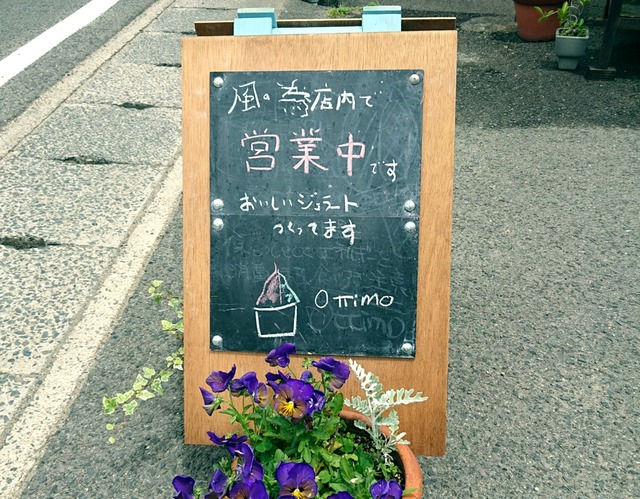 風の為店内で
営業中です
おいしいジェラート
つくってます
OTTIMO